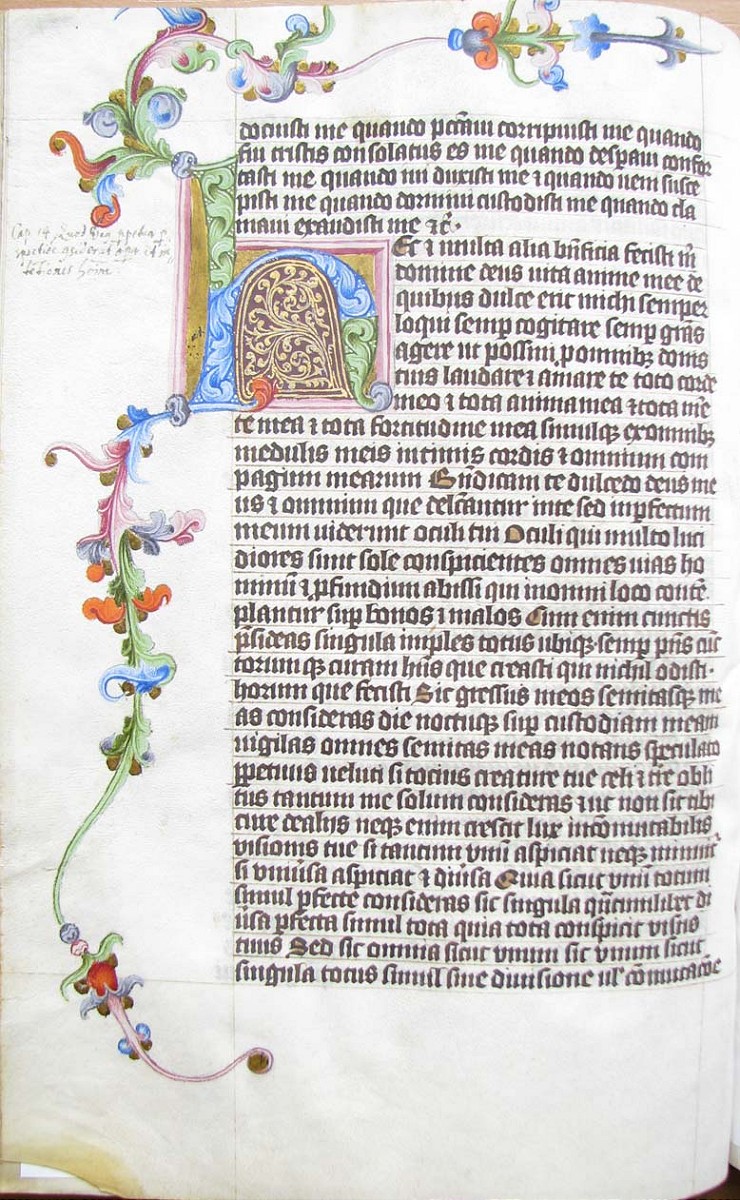 docuisti me quando pccaui corripuisti me quando
fui tristis consolatus es me quando despaui confor
tasti me quando iui duxisti me ⁊ quando ueni susce
pisti me quando dormiui custodisti me quando cla
maui exaudisti me ⁊c.
Cap. 14.
Hec ⁊ multa alia bnficia fecisti m
domine deus uita anime mee de
quibus dulce erit michi semper
loqui semp cogitare semp gras
agere ut possim pomnibꝫ bonis
tuis laudare ⁊ amare te toto corde
meo ⁊ tota anima mea ⁊ tota me
te mea ⁊ tota fortitudine mea simulqꝫ exomnibꝫ
medulis meis intimis cordis ⁊ omnium com
pagium mearum te dulcedo deus me
us ⁊ omnium que delcantur inte sed inperfectum
meum uiderunt oculi tui Oculi qui multo luci
diores sunt sole conspicientes omnes uias ho
minu ⁊ pfundium abissi qui inomni loco conte
plantur sup bonos ⁊ malos Cum enim cunctis
psideas singula imples totus ubiqꝫ semp pns cuc
torumqꝫ curam hns que creasti qui nichil odisti
horum que fecisti Sic gressus meos semitasqꝫ me
as consideras die noctuqꝫ sup custodiam meam
uigilas omnes semitas meas notans speculator
ppetuus ueluti si tocius creature tue celi ⁊ tre obli
tus tantum me solum consideras ⁊ ut non sit tibi
cure dealijs neqꝫ enim crescit lux incomutabilis
visionis tue si tantum vnu aspiciat neqꝫ minuit
si vniusa aspiciat ⁊ diusa Quia sicut vnu totum
simul pfecte consideras sic singula di
usa pfecta simul tota quia tota conspicit visus
tuus Sed sic omnia sicut vnum sic vnum sicut
singula totus simul sine diuisione ul comutacoe